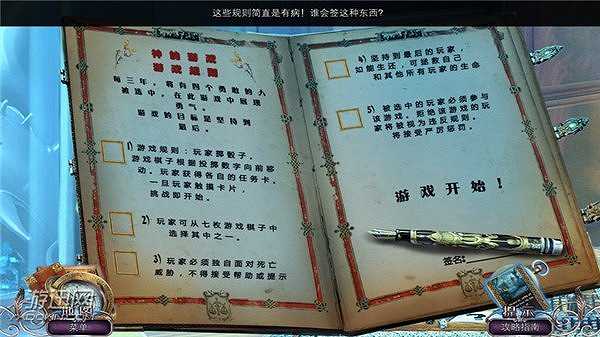 这些规则简直是有病！谁会签这种东西？
神的游戏
游戏规则
每三年，将有四个勇敢的人
被选中，在此游戏中展现
勇气。
游戏的目标是坚持到
最后。
1) 游戏规则：玩家掷骰子，
游戏棋子根据投掷数字向前移
动。玩家获得各自的任务卡。
一旦玩家触摸卡片，
挑战即开始。
2) 玩家可从七枚游戏棋子中
选择其中之一。
3) 玩家必须独自面对死亡
威胁，不得接受帮助或提示
4) 坚持到最后的玩家，
如能生还，可拯救自己
和其他所有玩家的生命
5) 被选中的玩家必须参与
该游戏。拒绝该游戏的玩
家将被视为违反规则，
将接受严厉惩罚。
游戏开始！
签名：
地图
菜单
提示
攻略指南